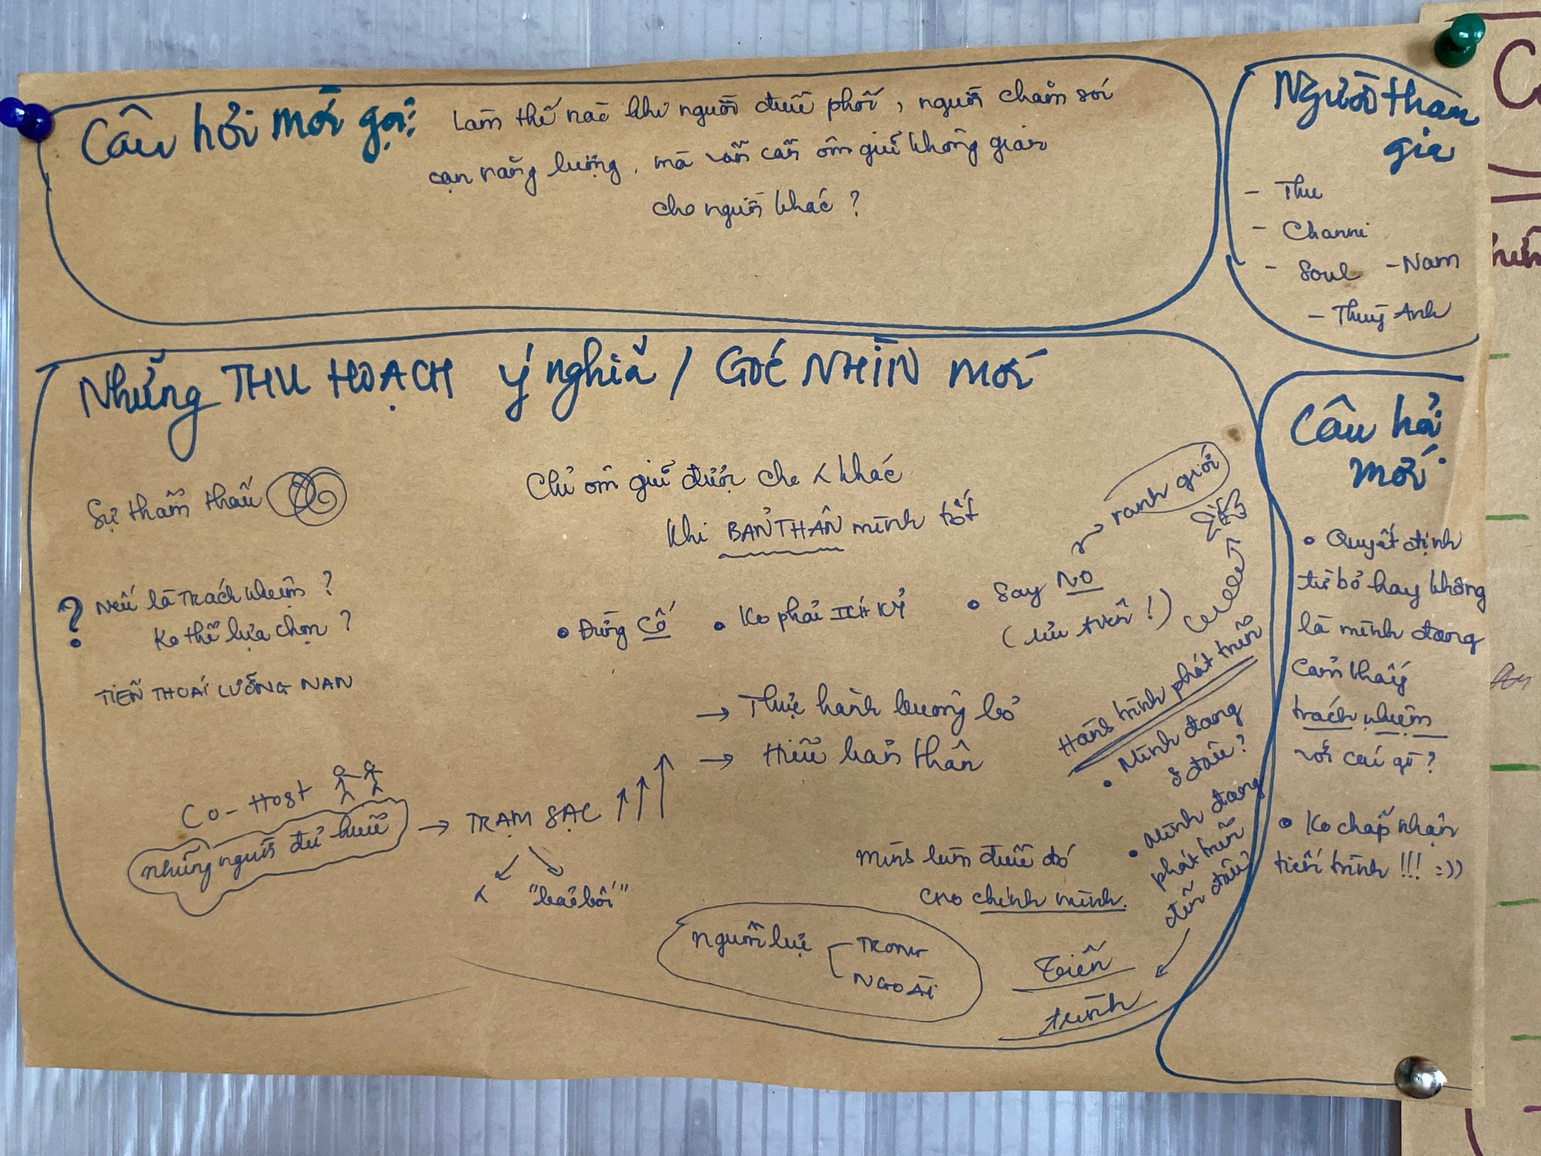 Câu hỏi mời gọi: Làm thế nào khi người điều phối, người chăm sóc
cạn năng lượng, mà vẫn cần ôm giữ không gian
cho người khác?
Người tham
gia
- Thu
- Channi
- Soul - Nam
- Thuỳ Anh
Những THU HOẠCH ý nghĩa / GÓC NHÌN mới
Sự thẩm thấu
? Nếu là Trách nhiệm?
Ko thể lựa chọn?
TIẾN THOÁI LƯỠNG NAN
Chỉ ôm giữ được cho khác
Khi BẢN THÂN mình tốt
• Đừng Cố
• Ko phải ÍCH KỶ
• Say NO
(ưu tiên!)
ranh giới
→ Thực hành buông bỏ
→ Hiểu bản thân
Co-Host
những người đủ hiểu
→ TRẠM SẠC
"bải bôi"
Mình luôn điều đó
cho chính mình.
Nguồn lực
TRONG
NGOÀI
Hành trình phát triển
• Mình đang
ở đâu?
• Mình đang
phát triển
đến đâu?
Tiến
trình
Câu hỏi
mới
• Quyết định
từ bỏ hay không
là mình đang
cảm thấy
trách nhiệm
với cái gì?
• Ko chấp nhận
tiến trình!!! :))